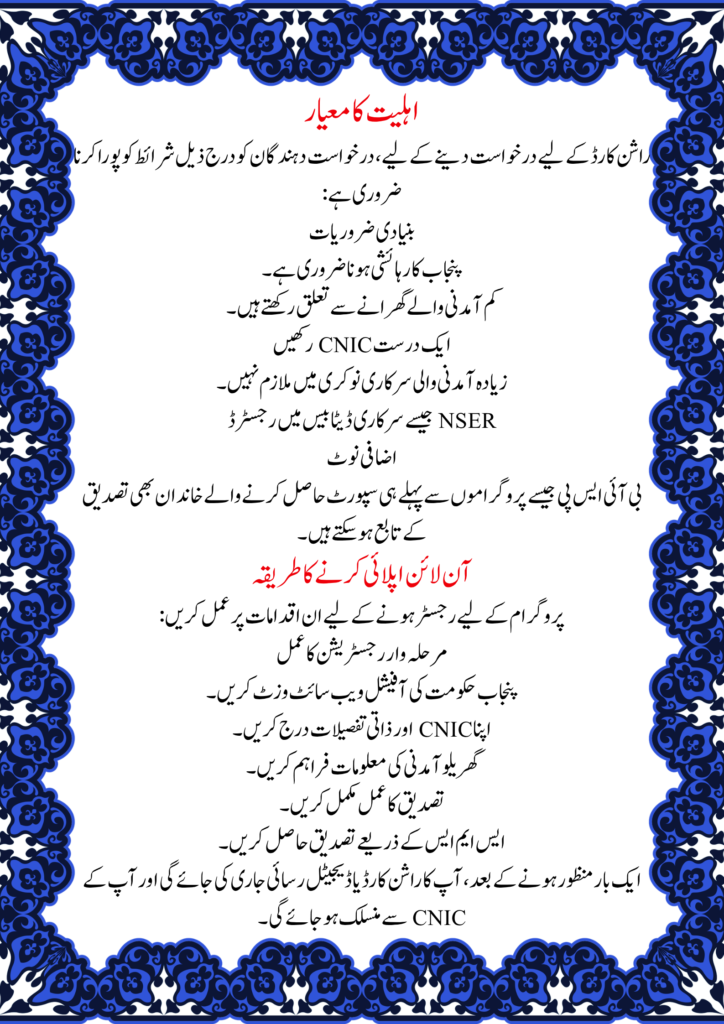 اہلیت کا معیار
راشن کارڈ کے لیے درخواست دینے کے لیے، درخواست دہندگان کو درج ذیل شرائط کو پورا کرنا
ضروری ہے:
بنیادی ضروریات
پنجاب کا رہائشی ہونا ضروری ہے۔
کم آمدنی والے گھرانے سے تعلق رکھتے ہیں۔
ایک درست CNIC رکھیں
زیادہ آمدنی والی سرکاری نوکری میں ملازم نہیں۔
NSER جیسے سرکاری ڈیٹا بیس میں رجسٹرڈ
اضافی نوٹ
بی آئی ایس پی جیسے پروگراموں سے پہلے ہی سپورٹ حاصل کرنے والے خاندان بھی تصدیق
کے تابع ہو سکتے ہیں۔
آن لائن اپلائی کرنے کا طریقہ
پروگرام کے لیے رجسٹر ہونے کے لیے ان اقدامات پر عمل کریں:
مرحلہ وار رجسٹریشن کا عمل
پنجاب حکومت کی آفیشل ویب سائٹ وزٹ کریں۔
اپنا CNIC اور ذاتی تفصیلات درج کریں۔
گھریلو آمدنی کی معلومات فراہم کریں۔
تصدیق کا عمل مکمل کریں۔
ایس ایم ایس کے ذریعے تصدیق حاصل کریں۔
ایک بار منظور ہونے کے بعد، آپ کا راشن کارڈ یا ڈیجیٹل رسائی جاری کی جائے گی اور آپ کے
CNIC سے منسلک ہو جائے گی۔